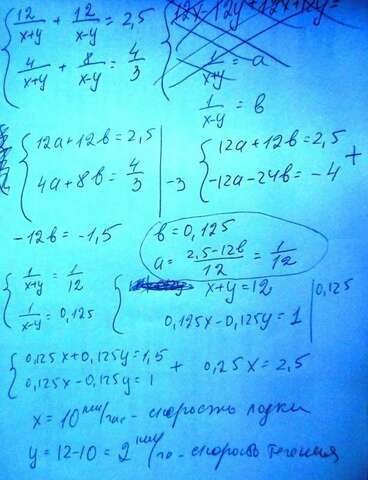 12/(x+y) + 12/(x-y) = 2,5
4/(x+y) + 8/(x-y) = 4/3
1/(x+y) = a
1/(x-y) = b
12a+12b=2,5
4a+8b=4/3 | -3
12a+12b=2,5
-12a-24b=-4 +
-12b=-1,5
b=0,125
a= (2,5-12b)/12 = 1/12
1/(x+y) = 1/12
1/(x-y) = 0,125
x+y=12 | 0,125
0,125x-0,125y=1
0,125x+0,125y=1,5
0,125x-0,125y=1 + 0,25x=2,5
x=10 км/час - скорость лодки
y=12-10=2 - скорость течения